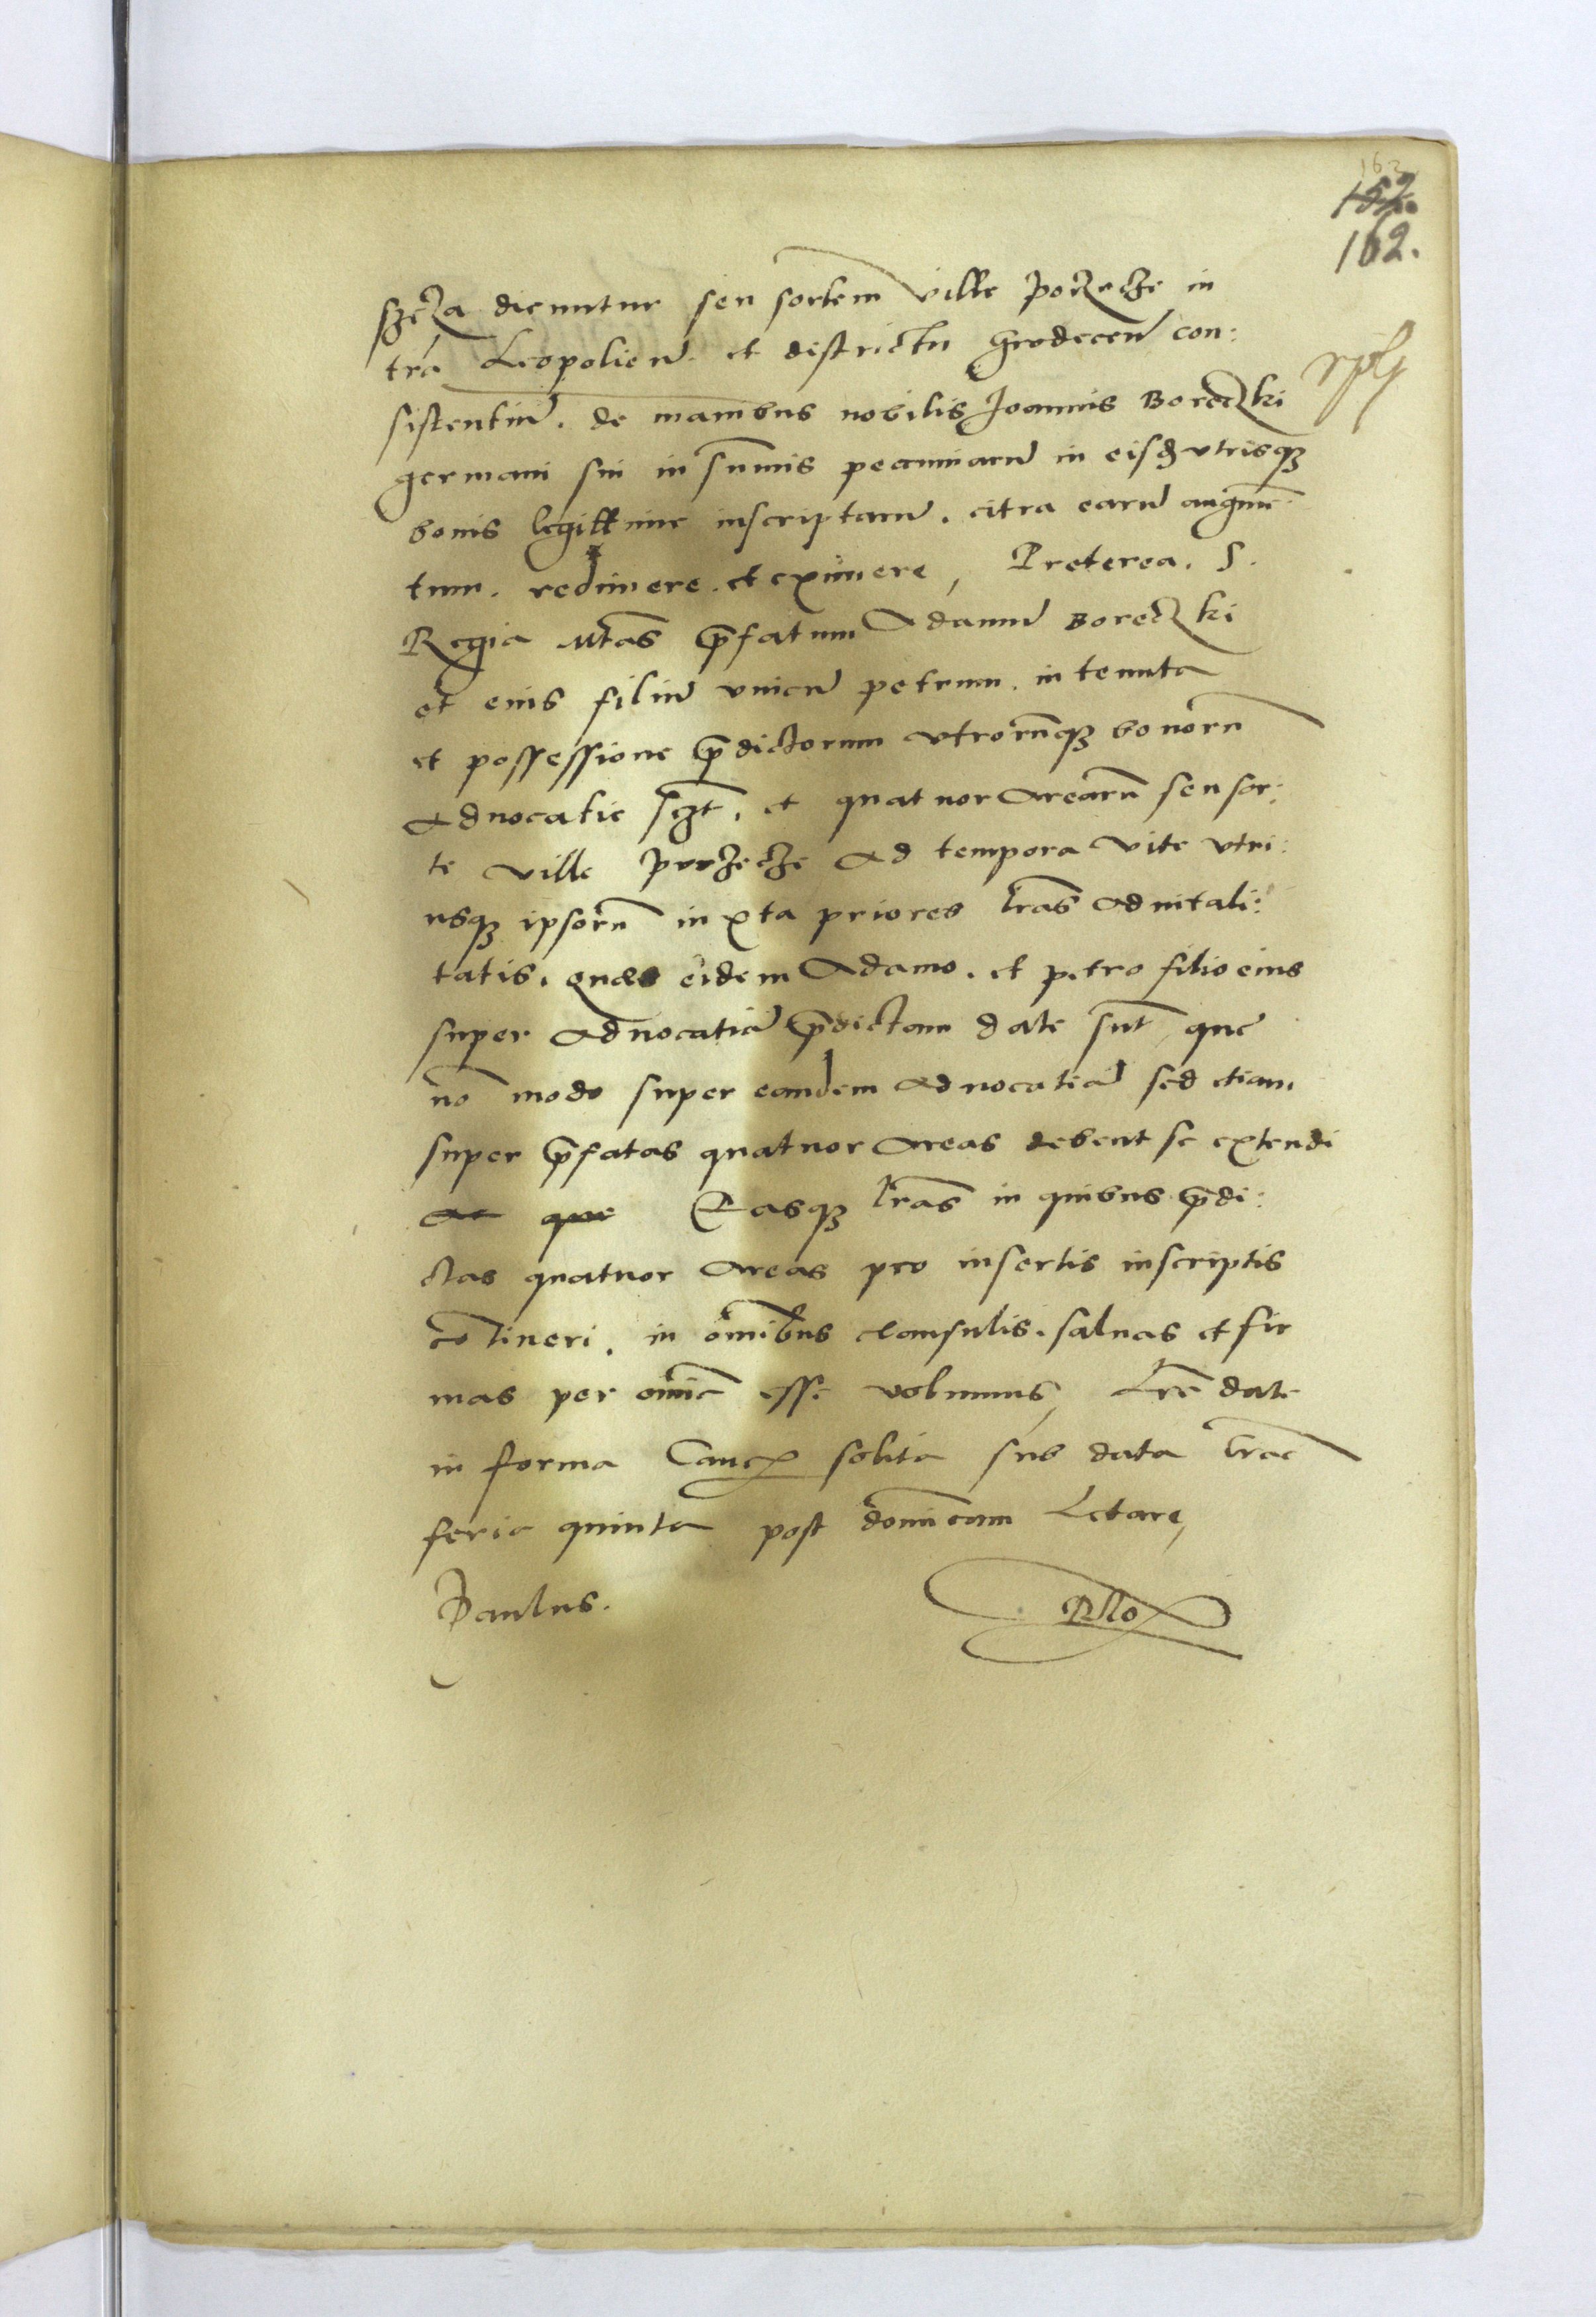 163
157.
162.
szcza dicuntur seu sortem ville porzecze in
tra Leopolien. et districtu grodecen con:
sistentiu. de manibus nobilis Joannis Boreczki
germani sui in summis pecuniaru in eisd utrisq
bonis legittime inscriptaru. citra earu augmē
tum. redimere. et eximere, Preterea. S.
Regia Mtas pfatum Adamu Boreczki
et eius filiu unicu petrum. in tenuta
et possessione pdictorum utrorumq bonoru
advocatie sczt. et quatuor arearu seu sor:
te ville porzecze ad tempora vite utri:
usq ipsoru iuxta priores lras advitali:
tatis. quae eidem Adamo. et petro filio eius
super advocatia pdictam date sut, que
no modo super eandem advocatia sed etiam
super pfatas quatuor areas debent se extendi
ac que Easq lras in quibus pdi:
ctas quatuor areas pro insertis inscriptis
cotineri. in omibus clausulis. salvas et fir
mas per omie esse volumus, Lre date
in forma Canc solita sub data Crac
feria quinta post domicam Letare,
Paulus.